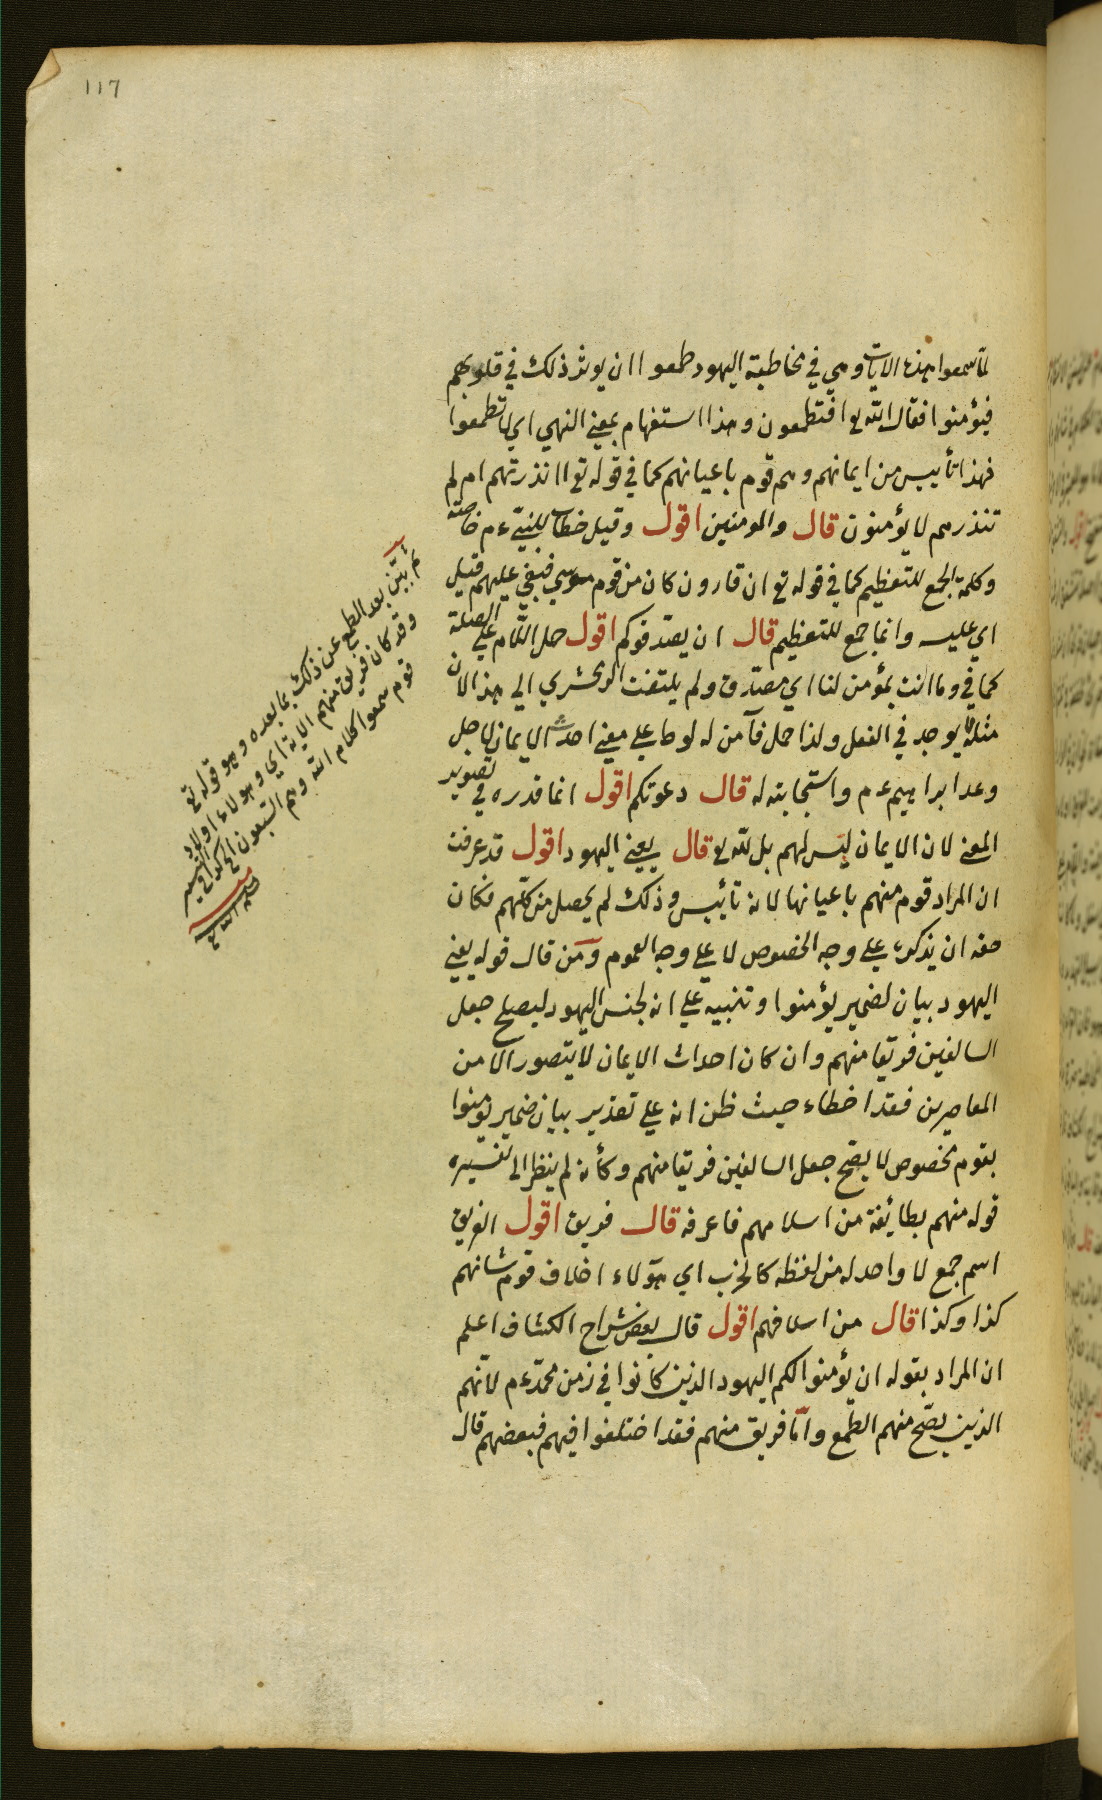 ١١٦
لما سمعوا بهذه الايات وهي في مخاطبة اليهود طمعوا ان يوثر ذلك في قلوبهم
فيؤمنوا فقال الله تع افتطمعون وهذا استفهام بمعني النهي اي لا تطمعوا
فهذا تأييس من ايمانهم وهم قوم باعيانهم كما في قوله تع اانذرتهم ام لم
تنذرهم لا يؤمنون قال والمومنين اقول وقيل خطاب للنبي ءم خاصة
وكلمة الجمع للتعظيم كما في قوله تع ان قارون كان من قوم موسي فبغي عليهم قيل
اي عليه وانما جمع للتعظيم قال ان يصدقوكم اقول حمل اللام علي الصلة
كما في وما انت بمؤمن لنا اي مصدق ولم يلتفت الزمخشري الي هذا لان
مثله لا يوجد في الفعل ولذا حمل فآمن له لوط علي معني احدث الايمان لاجل
وعد ابراهيم ءم واستجابته له قال دعوتكم اقول انما قدره في تصوير
المعني لان الايمان ليس لهم بل لله تع قال يعني اليهود اقول قد عرفت
ان المراد قوم منهم باعيانها لانه تأييس وذلك لم يحصل من كلهم فكان
حقه ان يذكره علي وجه الخصوص لا علي وجه العموم ومن قال قوله يعني
اليهود بيان لضمير يؤمنوا وتنبيه علي انه لجنس اليهود ليصلح جعل
السالفين فريقا منهم وان كان احداث الايمان لا يتصور الا من
المعاصرين فقد اخطاء حيث ظن انه علي تقدير بيان ضمير يومنوا
بقوم مخصوص لا يصح جعل السالفين فريقا منهم وكأنه لم ينظر الي تفسيره
قوله منهم بطائفة من اسلامهم فاعرفه قال فريق اقول الفريق
اسم جمع لا واحد له من لفظه كالحزب اي هؤلاء اخلاف قوم شانهم
كذا وكذا قال من اسلافهم اقول قال بعض شراح الكشاف اعلم
ان المراد بقوله ان يؤمنوا لكم اليهود الذين كانوا في زمن محمد ءم لانهم
الذين يصح منهم الطمع واما فريق منهم فقد اختلفوا فيهم فبعضهم قال
ثم بين بعد الطمع عن ذلك بما بعده وهو قوله تع
وقد كان فريق منهم الاية اي وهولاء اولاد
قوم سمعوا كلام الله وهم السبعون الخ